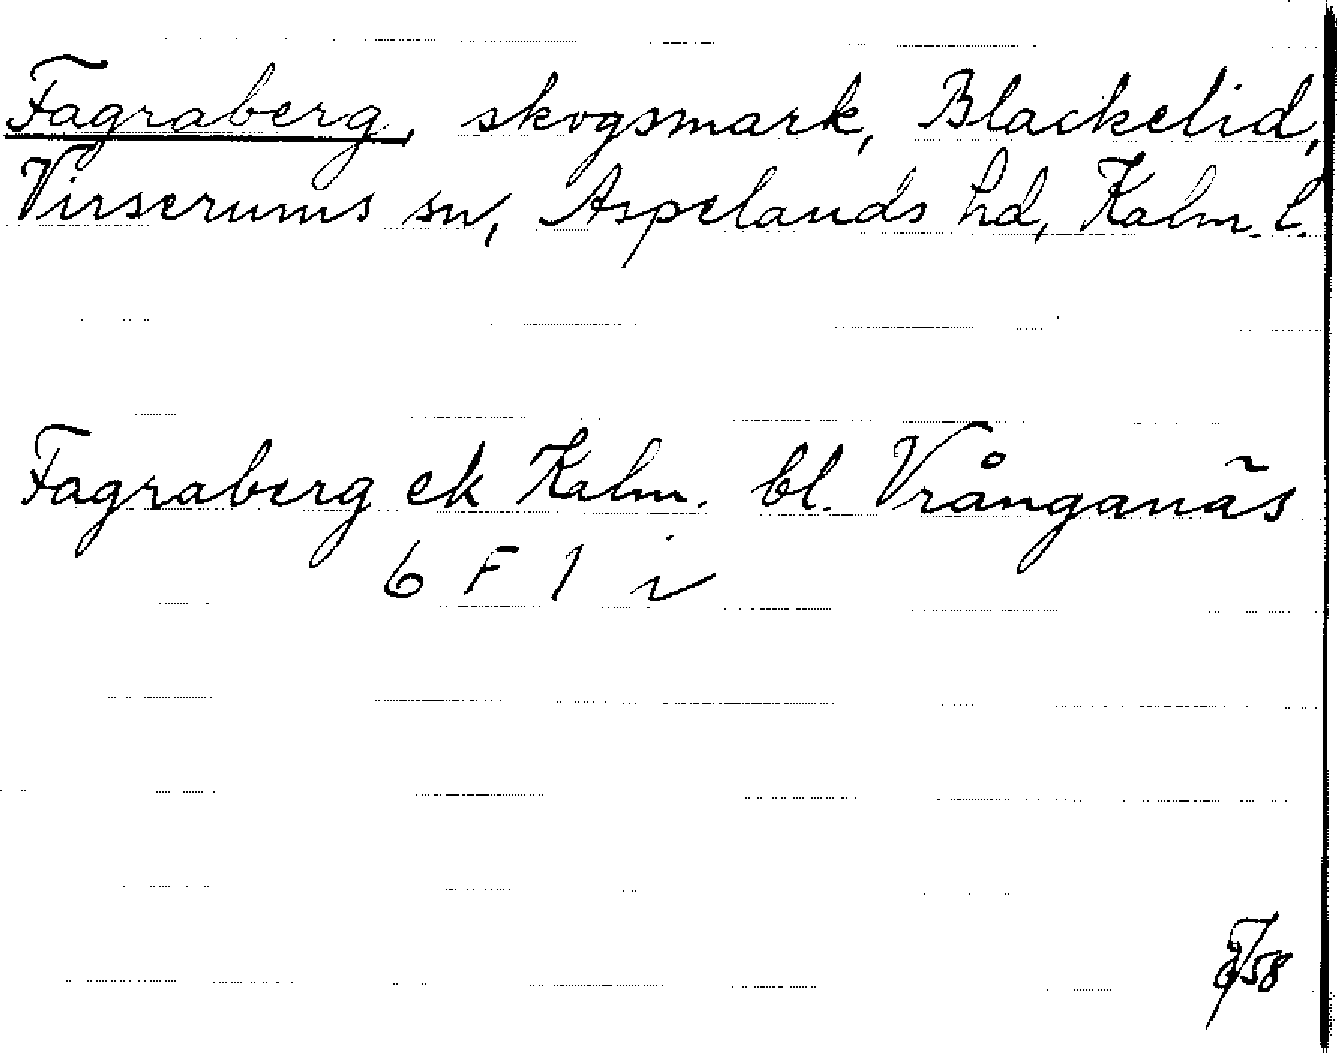 Fagraberg, skogsmark, Blackelid,
Virserums sn, Aspelands hd, Kalm. l.
Fagraberg ek Kalm. bl. Vrånganäs
6 F 1 i
58